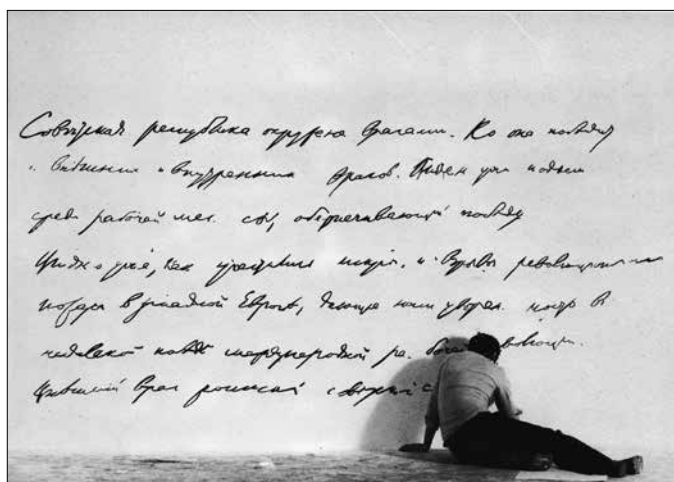 Советская республика окружена врагами. Но она победит
и внешних и внутренних врагов. Виден уже подъем
среди рабочей массы, обеспечивающий победу
Видно уже, как участились искры и взрывы революционного
пожара в Западной Европе, дающие нам уверен. в
недалекой победе международной рабочей революции.
Внешний враг российской